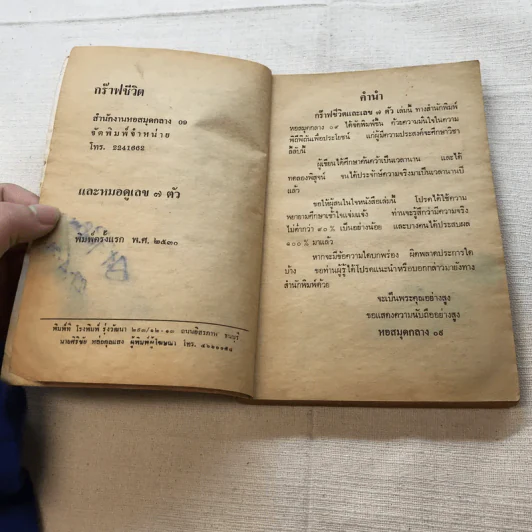 กร๊าฟชีวิต
สำนักงานหอสมุดกลาง ๐๑
จัดพิมพ์จำหน่าย
โทร. 2241662
และหมอดูเลข ๗ ตัว
พิมพ์ครั้งแรก พ.ศ. ๒๕๓๐
พิมพ์ที่ โรงพิมพ์ รุ่งวัฒนา ถนนอิสรภาพ ธนบุรี
นายศิริชัย ผู้พิมพ์ผู้โฆษณา โทร.
คำนำ
กร๊าฟชีวิตและเลข ๗ ตัว เล่มนี้ ทางสำนักพิมพ์
หอสมุดกลาง ๐๙ ได้จัดพิมพ์ขึ้น ด้วยความมั่นใจในความ
พิถีพิถันเพื่อประโยชน์ แก่ผู้มีความประสงค์จะศึกษาวิชา
ลี้ลับนี้
ผู้เขียนได้ศึกษาค้นคว้าเป็นเวลานาน และได้
ทดลองพิสูจน์ จนได้ประจักษ์ความจริงมาเป็นเวลานานปี
แล้ว
ขอให้ผู้สนใจในหนังสือเล่มนี้ โปรดได้ใช้ความ
พยายามศึกษาเข้าใจแจ่มแจ้ง ท่านจะรู้สึกว่ามีความจริง
ไม่ต่ำกว่า ๙๐ % เป็นอย่างน้อย และบางคนได้ประสบผล
๑๐๐ % มาแล้ว
หากจะมีข้อความใดบกพร่อง ผิดพลาดประการใด
บ้าง ขอท่านผู้รู้ได้โปรดแนะนำหรือบอกกล่าวมายังทาง
สำนักพิมพ์ด้วย
จะเป็นพระคุณอย่างสูง
ขอแสดงความนับถืออย่างสูง
หอสมุดกลาง ๐๙